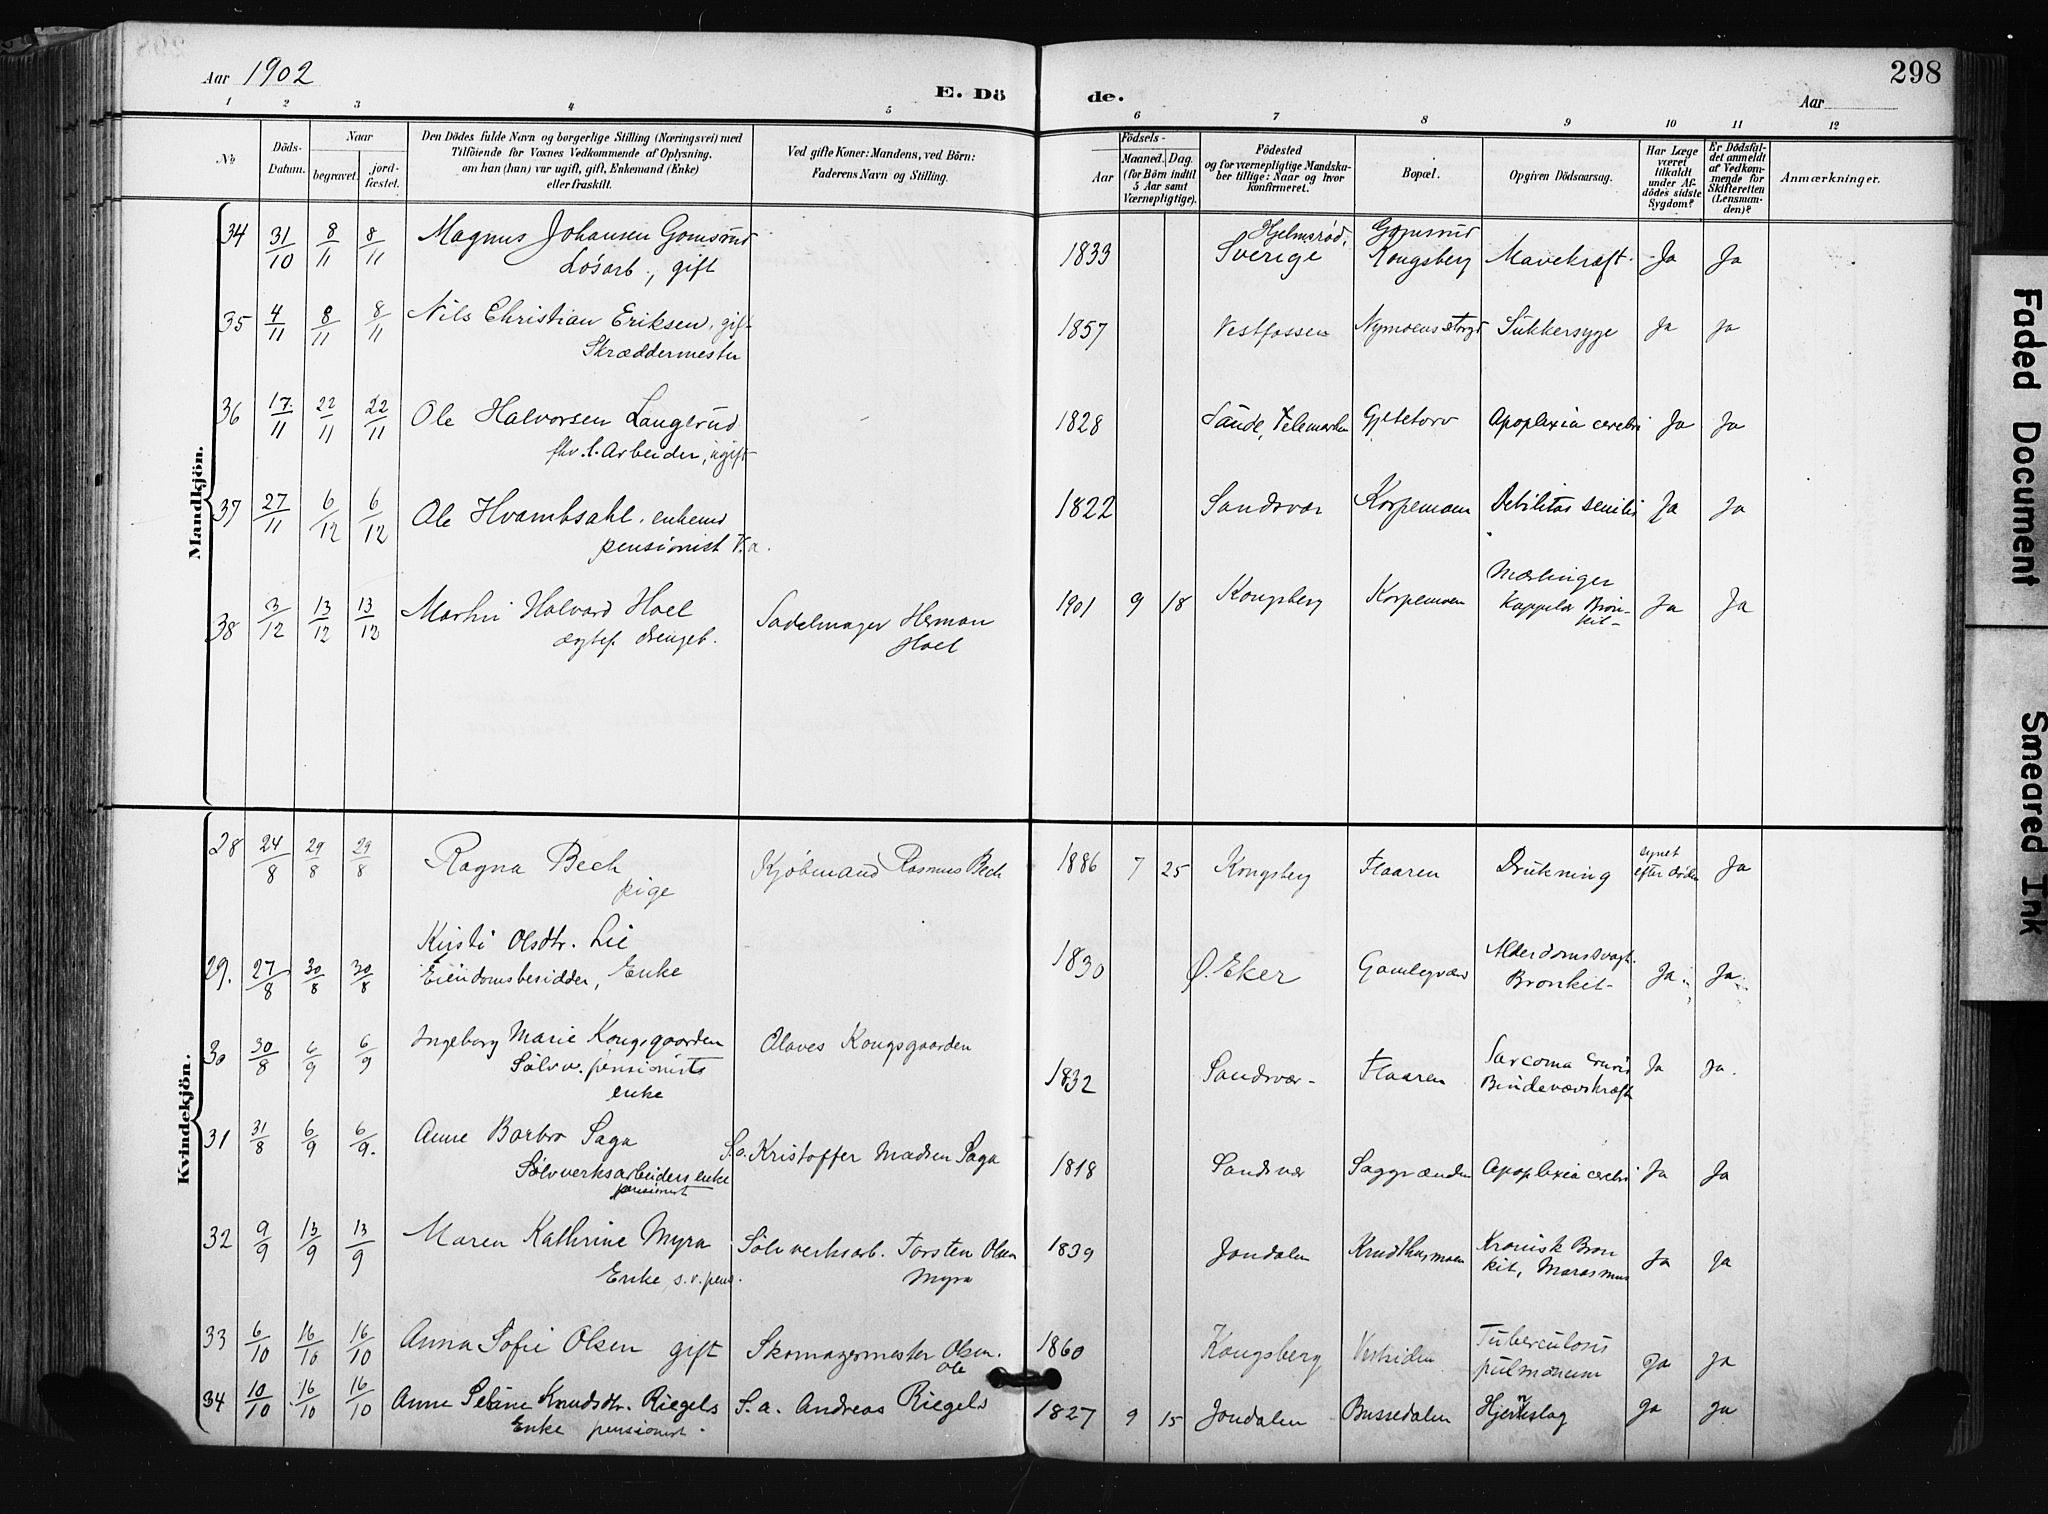 298
Aar 1902
E. Döde.
Aar
1 2 3 4 5 6 7 8 9 10 11 12
No
Döds-Datum.
Naar
begravet.
jord-fæstet.
Den Dödes fulde Navn og borgerlige Stilling (Næringsvei) med
Tilföiende for Voxnes Vedkommende af Oplysning,
om han (hun) var ugift, gift, Enkemand (Enke)
eller fraskilt.
Ved gifte Koner: Mandens, ved Börn:
Faderens Navn og Stilling.
Födsels-
Aar
Maaned. Dag.
(for Börn indtil
5 Aar samt
Værnepligtige).
Födested
og for værnepligtige Mandska-
ber tillige: Naar og hvor
konfirmeret.
Bopæl.
Opgiven Dödsaarsag.
Har Læge
været
tilkaldt
under Af-
dödes sidste
Sygdom?
Er Dödsfal-
det anmeldt
af Vedkom-
mende for
Skifteretten
(Lensman-
den)?
Anmærkninger.
Mandkjön.
34 31/10 8/11 8/11 Magnus Johansen Gomsrud 1833 Hjelmsröd, Sverige Gomsrud Kongsberg Mavekræft. Ja Ja
Løsarb., gift
35 4/11 8/11 8/11 Nils Christian Eriksen, gift 1857 Vestfossen Nymoens torg Sukkersyge Ja Ja
Skræddermester
36 17/11 22/11 22/11 Ole Halvorsen Langerud 1828 Saude, Telemarken Gjetetorv Apoplexia cerebri Ja Ja
fhv. s. Arbeider, ugift
37 27/11 6/12 6/12 Ole Hvambsahl. enkemd 1822 Sandsvær Korpemoen Debilitas senilis Ja Ja
pensionist
38 3/12 13/12 13/12 Martin Halvard Hoel Sadelmager Herman Hoel 1901 9 18 Kongsberg Korpemoen Mæslinger Kappelær Bronkit- Ja Ja
ægtef. drengeb.
Kvindekjön.
28 24/8 29/8 29/8 Ragna Bech Kjøbmand Rasmus Bech 1886 7 25 Kongsberg Flaaren Drukning synet efter døden Ja
pige
29. 27/8 30/8 30/8 Kirsti Olsdtr. Lie 1830 Ø. Eker Gamlegrænd Alderdomssvagh. Bronkit- Ja. Ja.
Eiendomsbesidder, Enke
30 30/8 6/9 6/9 Ingeborg Marie Kongsgaarden Olaves Kongsgaarden 1832 Sandsvær- Flaaren Sarcoma cruris Bindevævskræft Ja Ja.
Sølvv. pensionists
enke
31 31/8 6/9 6/9. Anne Barbro Saga S.a. Kristoffer Madsen Saga 1818 Sandsvær Saggrænden Apoplexia cerebri Ja Ja
Sølvverksarbeiders enke
pensionist
32 9/9 13/9 13/9 Maren Kathrine Myra Sølvverksarb. Torsten Olsen Myra 1839 Jondalen Knuthusmoen Kronisk Bronkit, Marasmus Ja Ja
Enke s.v. pens.
33 6/10 16/10 16/10 Anna Sofie Olsen gift Skomagermester Olsen. Ole 1860 Kongsberg Vestsiden Tuberculosis pulmonum Ja Ja
34 10/10 16/10 16/10 Anne Seline Knudsdtr. Riegels S.a. Andreas Riegels 1827 9 15 Jondalen Bussedalen Hjerneslag Ja Ja
Enke pensionist.
Faded Document
Smeared Ink